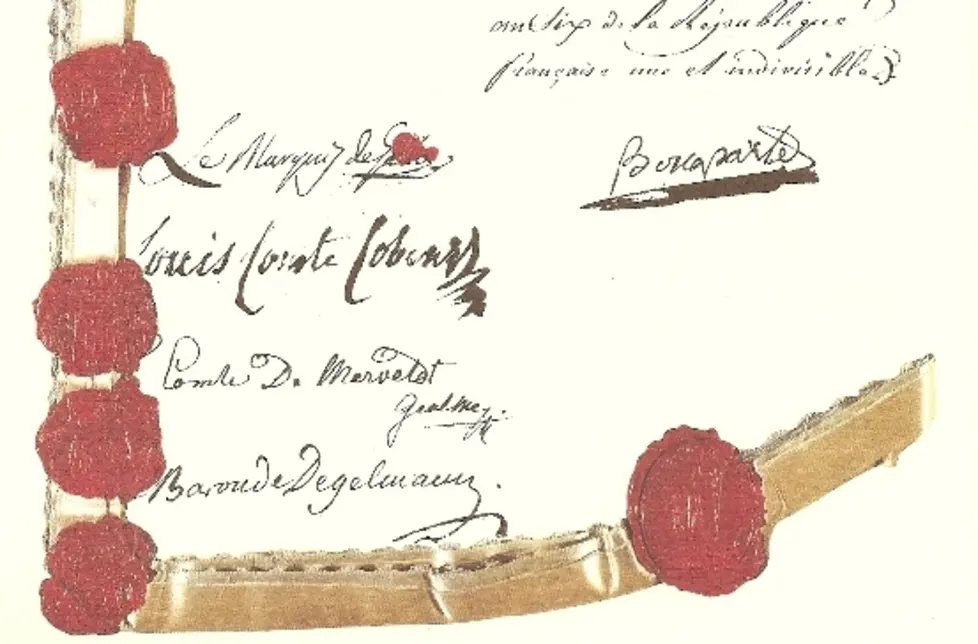 an six de la République
française une et indivisible.
Le Marquis de Gallo
Bonaparte
Louis Comte Cobenzl
Comte De Merveldt
Gral Maj.
Baron de Degelmann.